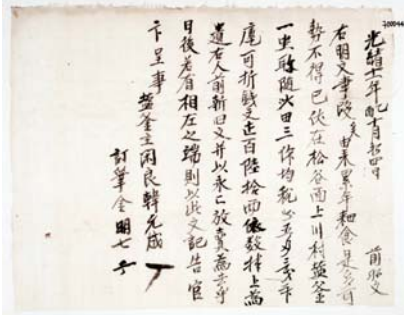 光緖十一年乙酉十月初四日 前明文
右明文事段矣由來累年 食是多可
勢不得已伏在松谷面上川村盐釜
一坐 随火田三作均税 五 三戔
庫可折錢文 百陸拾兩依數捧上為
遣右人前新旧文并以永永放賣為去乎
日後若有相左之端則以此文記告官
卞呈事 盐釜主闲良韓元成
訂筆金明七